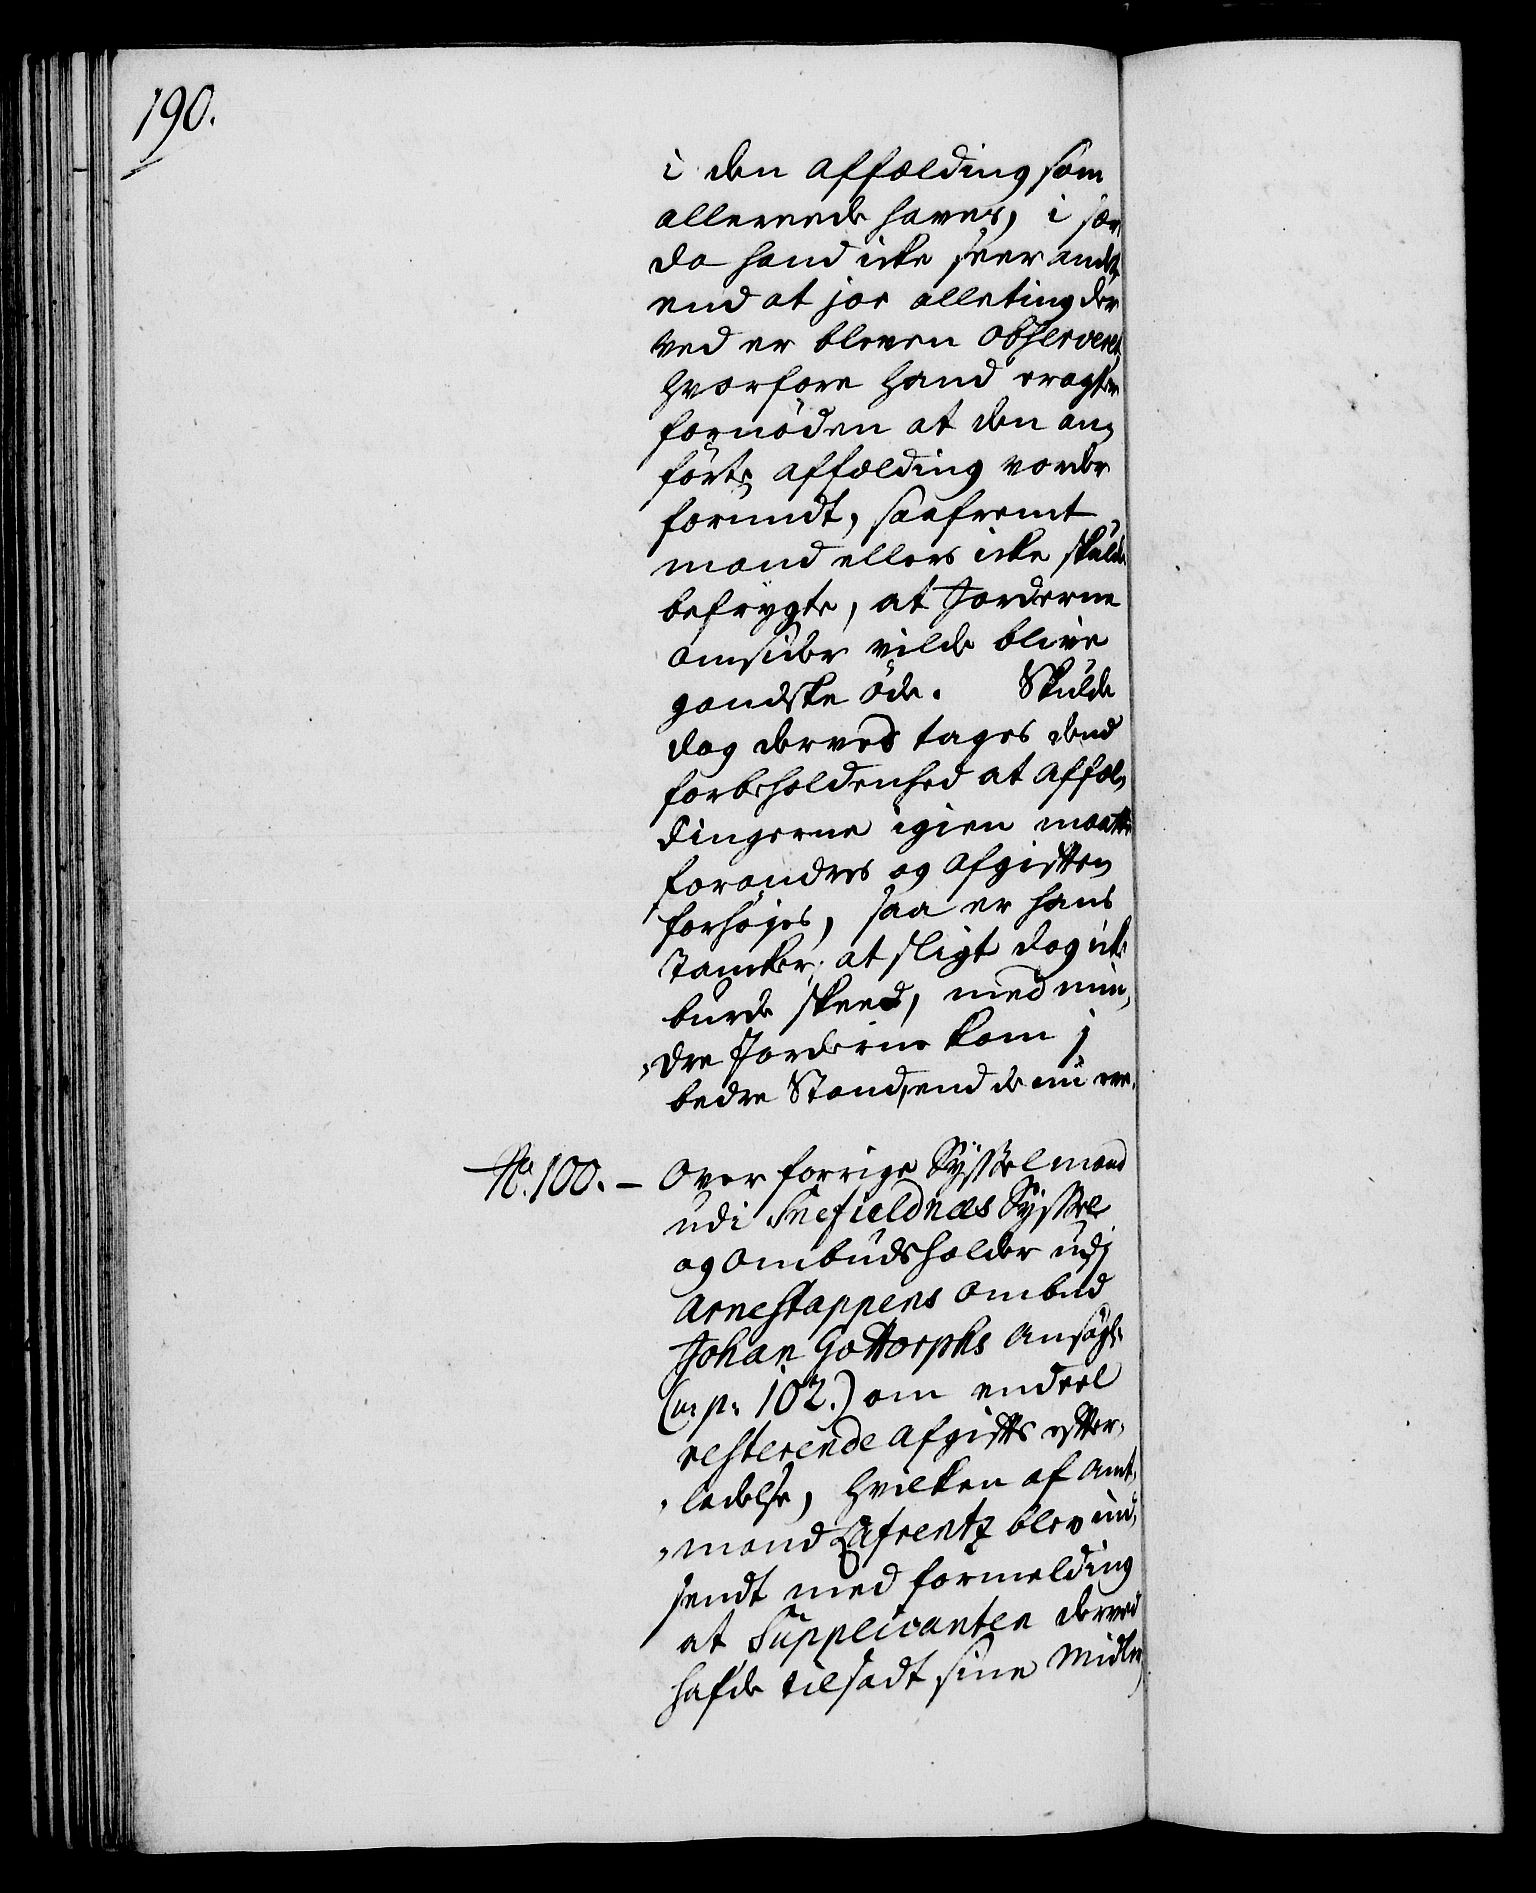 190.
i den affælding som
allereede haves, i sær
da hand icke seer andet,
end at joe alleting der
ved er bleven observeret,
hvorfore hand eragter
fornöden at den an-
förte affælding vorder
forundt, saafremt
mand ellers icke skulde
befrygte, at Jorderne
omsider vilde blive
gandske öde. Skulde
dog derved tages dend
forbeholdenhed at affæl-
dingerne igien maatte
forandres og afgiften
forhöjes, saa er hans
Tancker, at sligt dog icke
burde skeed, med min-
dre Jorderne kom i
bedre Stand, end de nu ere.
No. 100. - Over forrige Sysselmand
udi Snefieldnæs Syssel
og Ombudsholder udj
Arnestappens Ombud
Johan Gottorphs Ansögn:
(n: p: 102.) om endeel
resterende Afgifts efter-
ladelse, hvilken af Amt-
mand Lafrentz blev ind-
sendt med formelding
at Supplicanten derved
hafde tilsadt sine Midler,